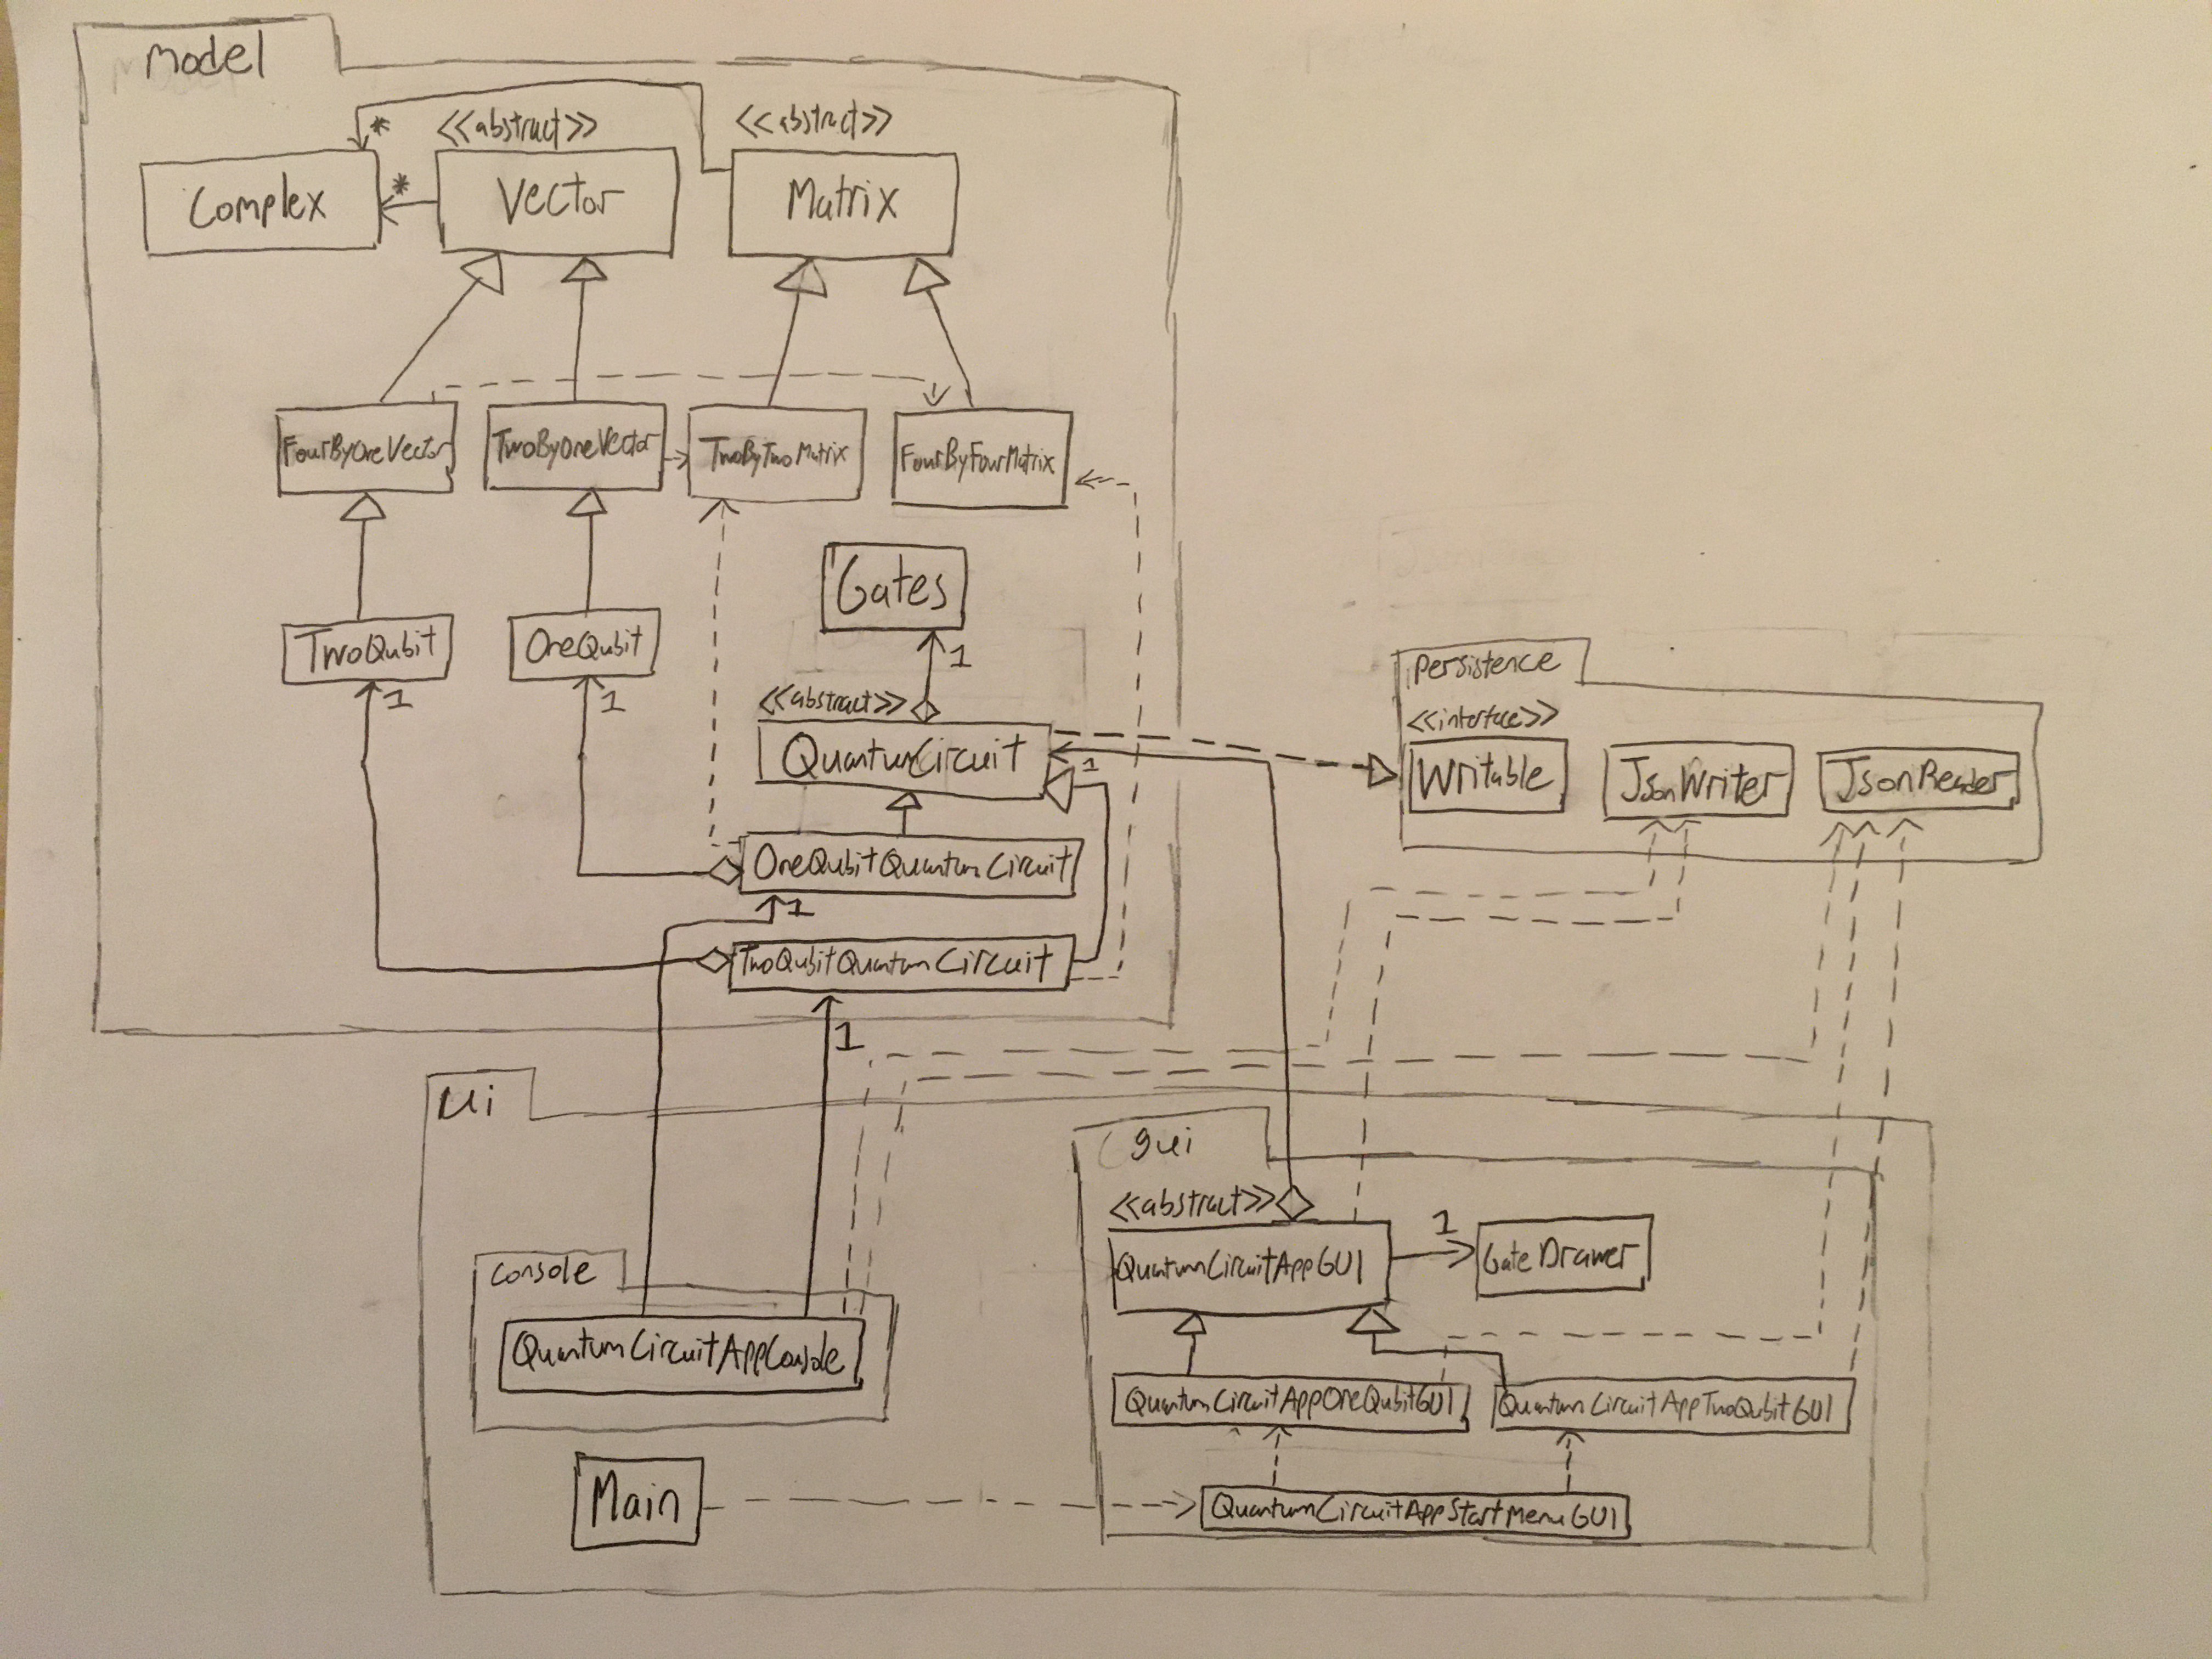 Model
*
<<abstract>>
<<abstract>>
Complex
*
Vector
Matrix
FourByOneVector
TwoByOneVector
TwoByTwoMatrix
FourByFourMatrix
Gates
1
TwoQubit
OneQubit
1
1
<<abstract>>
QuantumCircuit
1
OneQubitQuantumCircuit
1
TwoQubitQuantumCircuit
1
Persistence
<<interface>>
Writable
JsonWriter
JsonReader
Ui
Console
QuantumCircuitAppConsole
Main
gui
<<abstract>>
QuantumCircuitAppGUI
1
GateDrawer
QuantumCircuitAppOneQubitGUI
QuantumCircuitAppTwoQubitGUI
QuantumCircuitAppStartMenuGUI